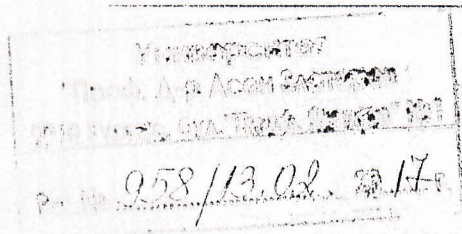 Университет
"Проф. Д-р Асен Златаров"
бул. "Проф. Якимов" № 1
№ 958/13.02. 2017 г.